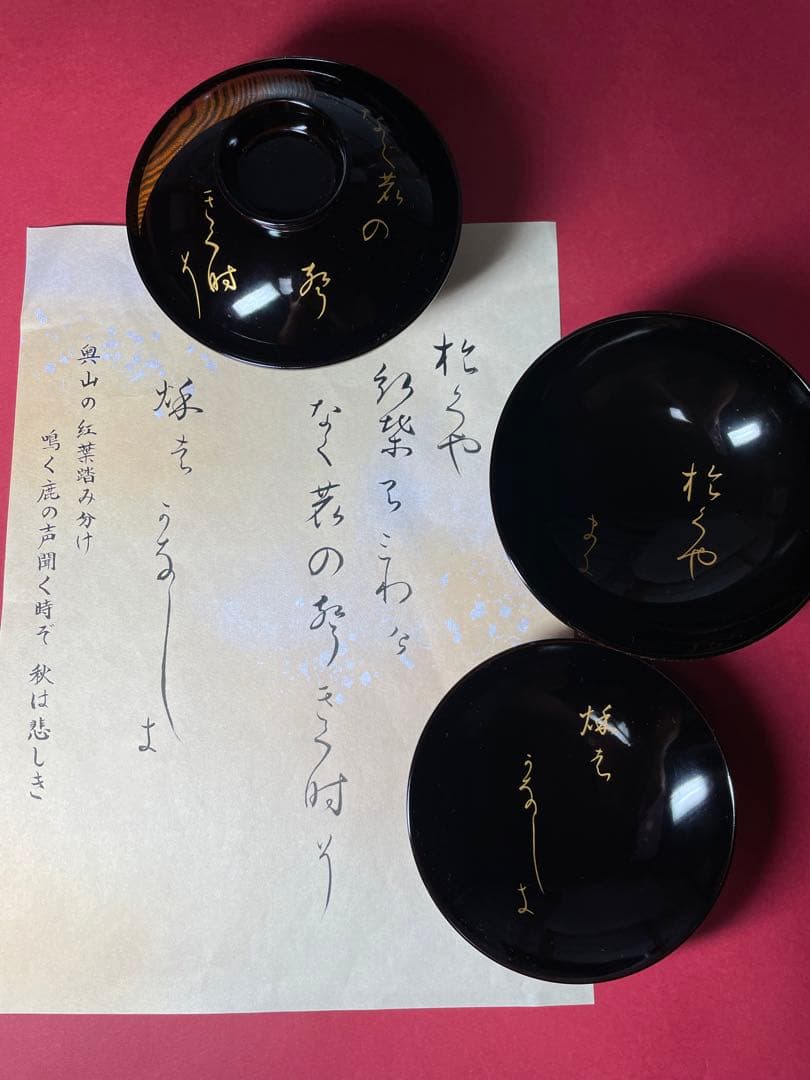 於くや
紅葉ふみわけ
なく鹿の聲きく時そ
秌は
かなしき
奥山の紅葉踏み分け
鳴く鹿の声聞く時ぞ 秋は悲しき
なく鹿の
聲
きく時
そ
於くや
ま
秌は
かなしき